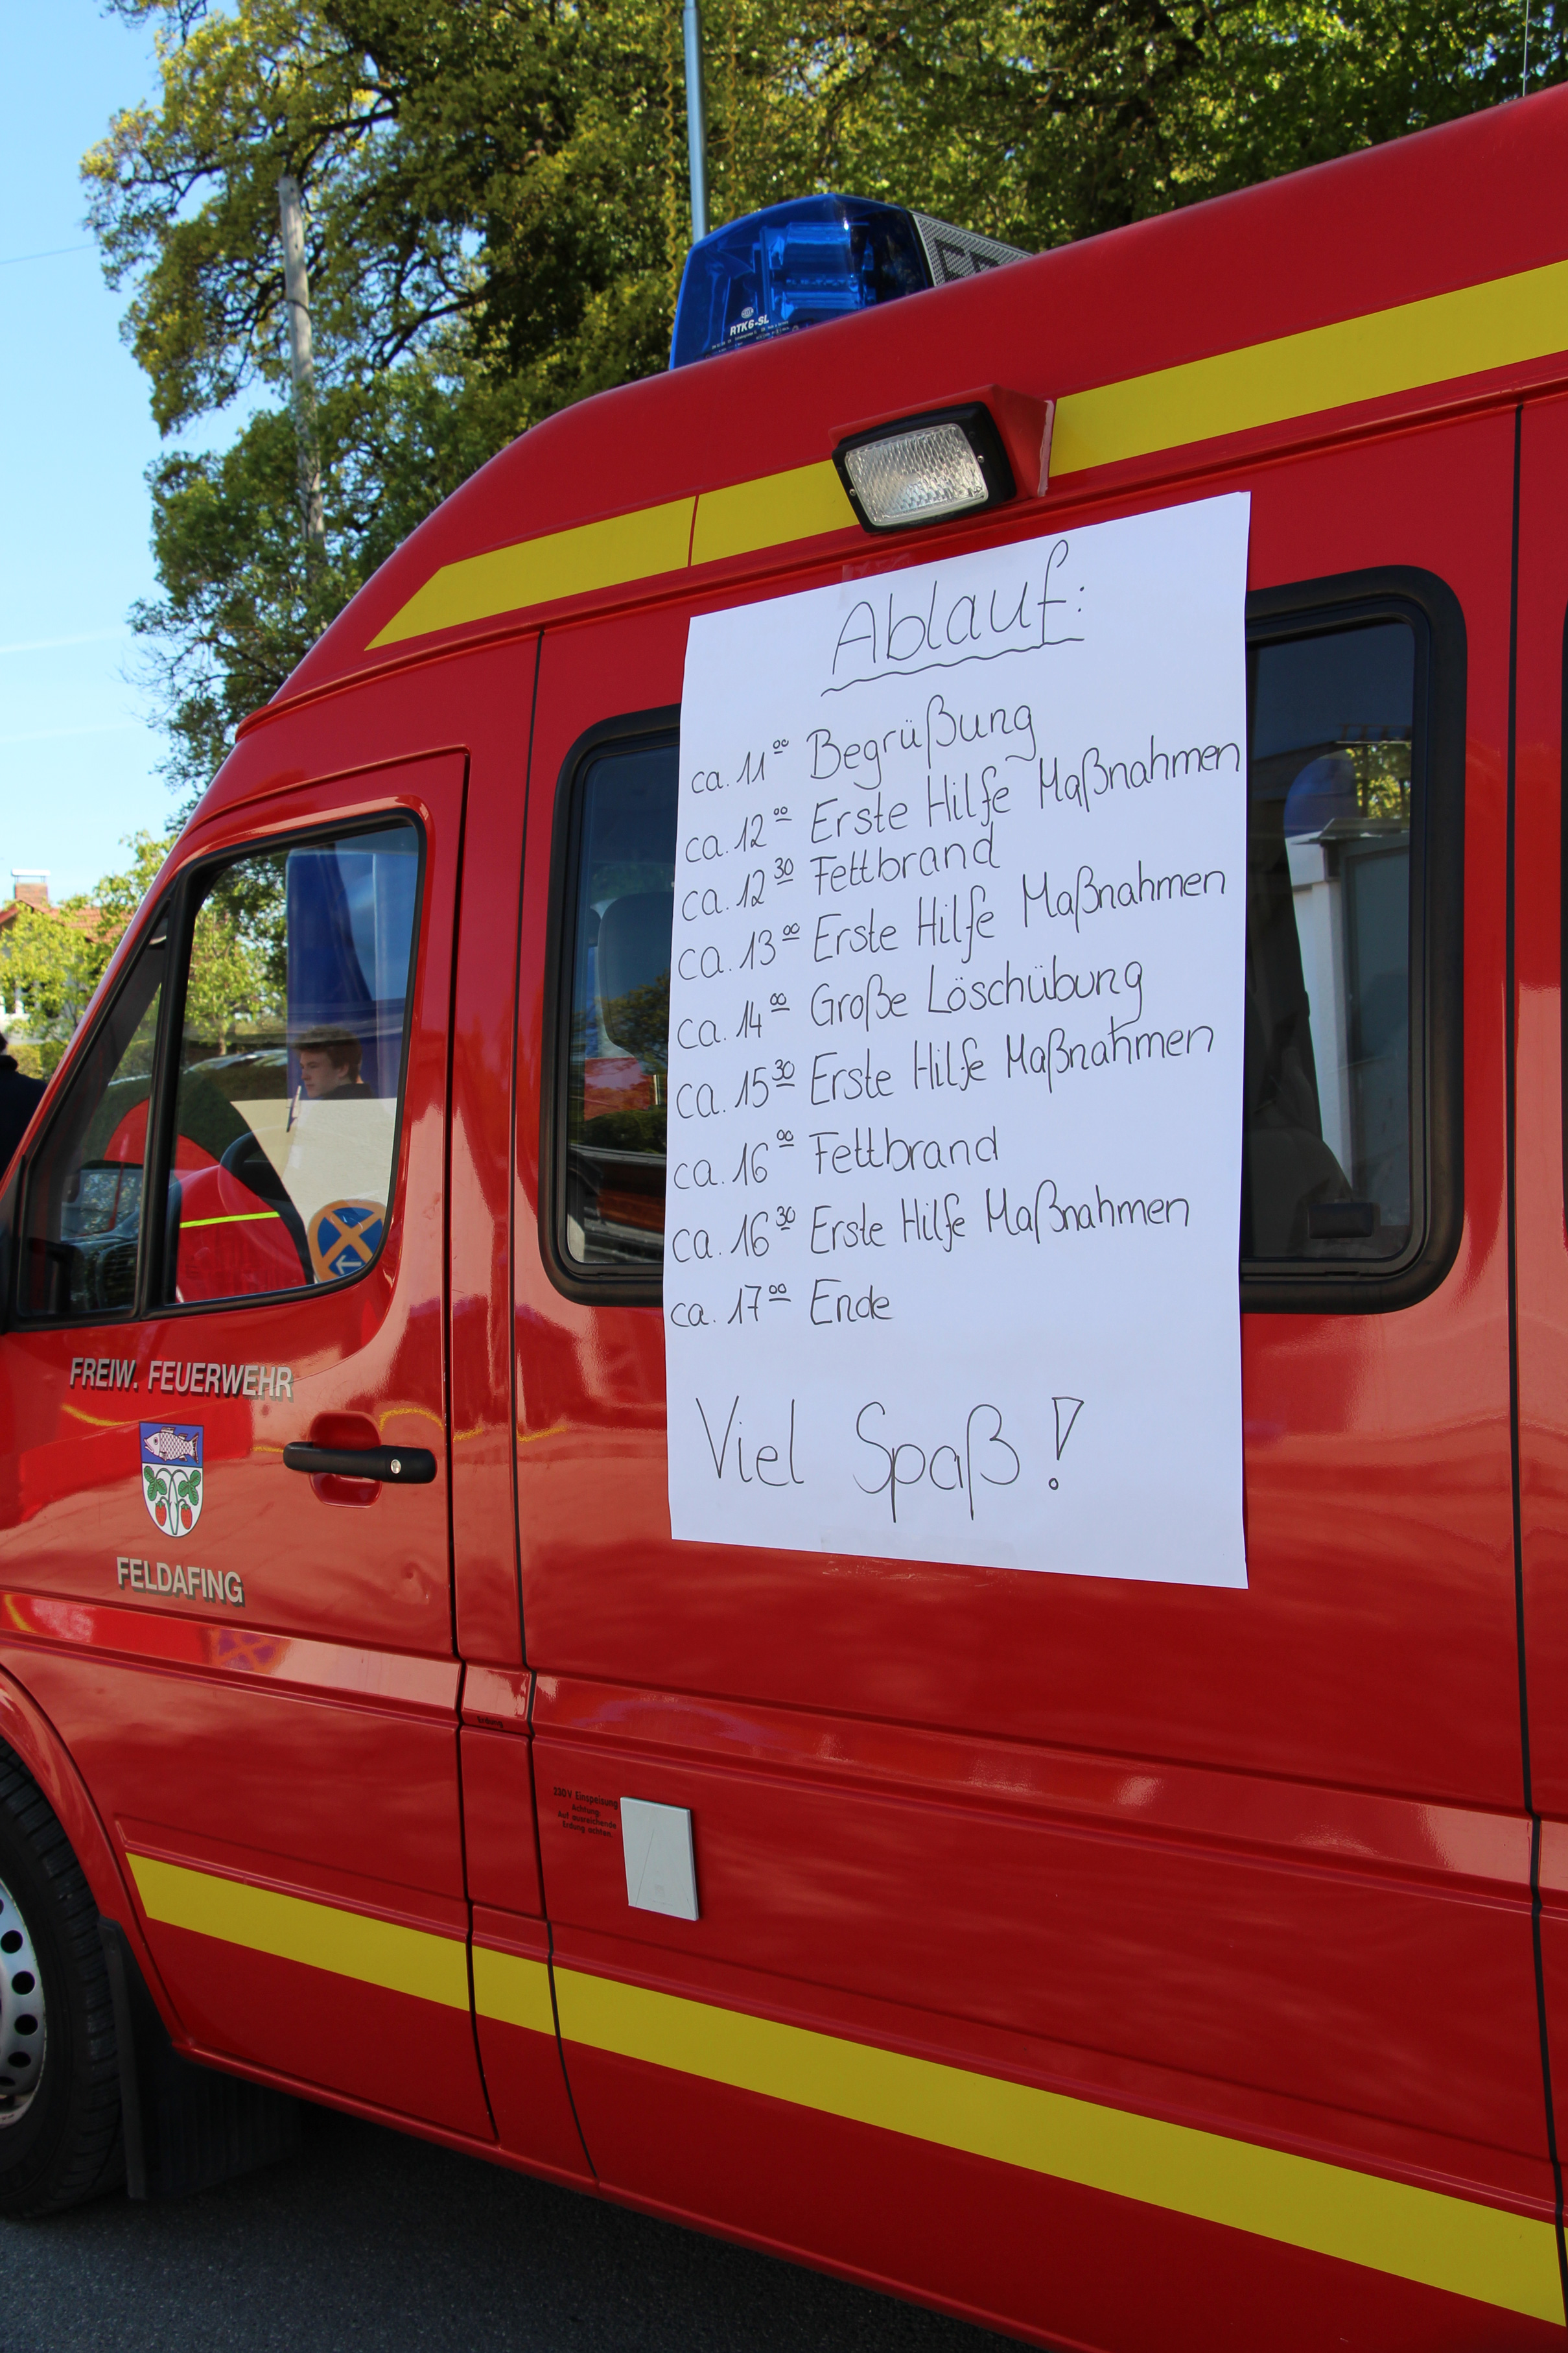 RTK6-SL
Ablauf:
ca. 11⁰⁰ Begrüßung
ca. 12⁰⁰ Erste Hilfe Maßnahmen
ca. 12³⁰ Fettbrand
ca. 13⁰⁰ Erste Hilfe Maßnahmen
ca. 14⁰⁰ Große Löschübung
ca. 15³⁰ Erste Hilfe Maßnahmen
ca. 16⁰⁰ Fettbrand
ca. 16³⁰ Erste Hilfe Maßnahmen
ca. 17⁰⁰ Ende
Viel Spaß!
FREIW. FEUERWEHR
FELDAFING
230V Einspeisung
Achtung:
Auf ausreichende
Erdung achten